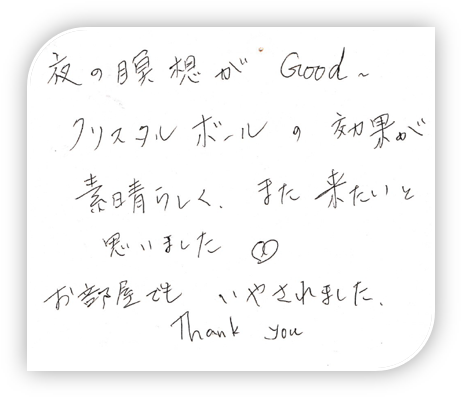 夜の瞑想が Good~
クリスタルボールの効果が
素晴らしく、また来たいと
思いました
お部屋でも いやされました.
Thank you